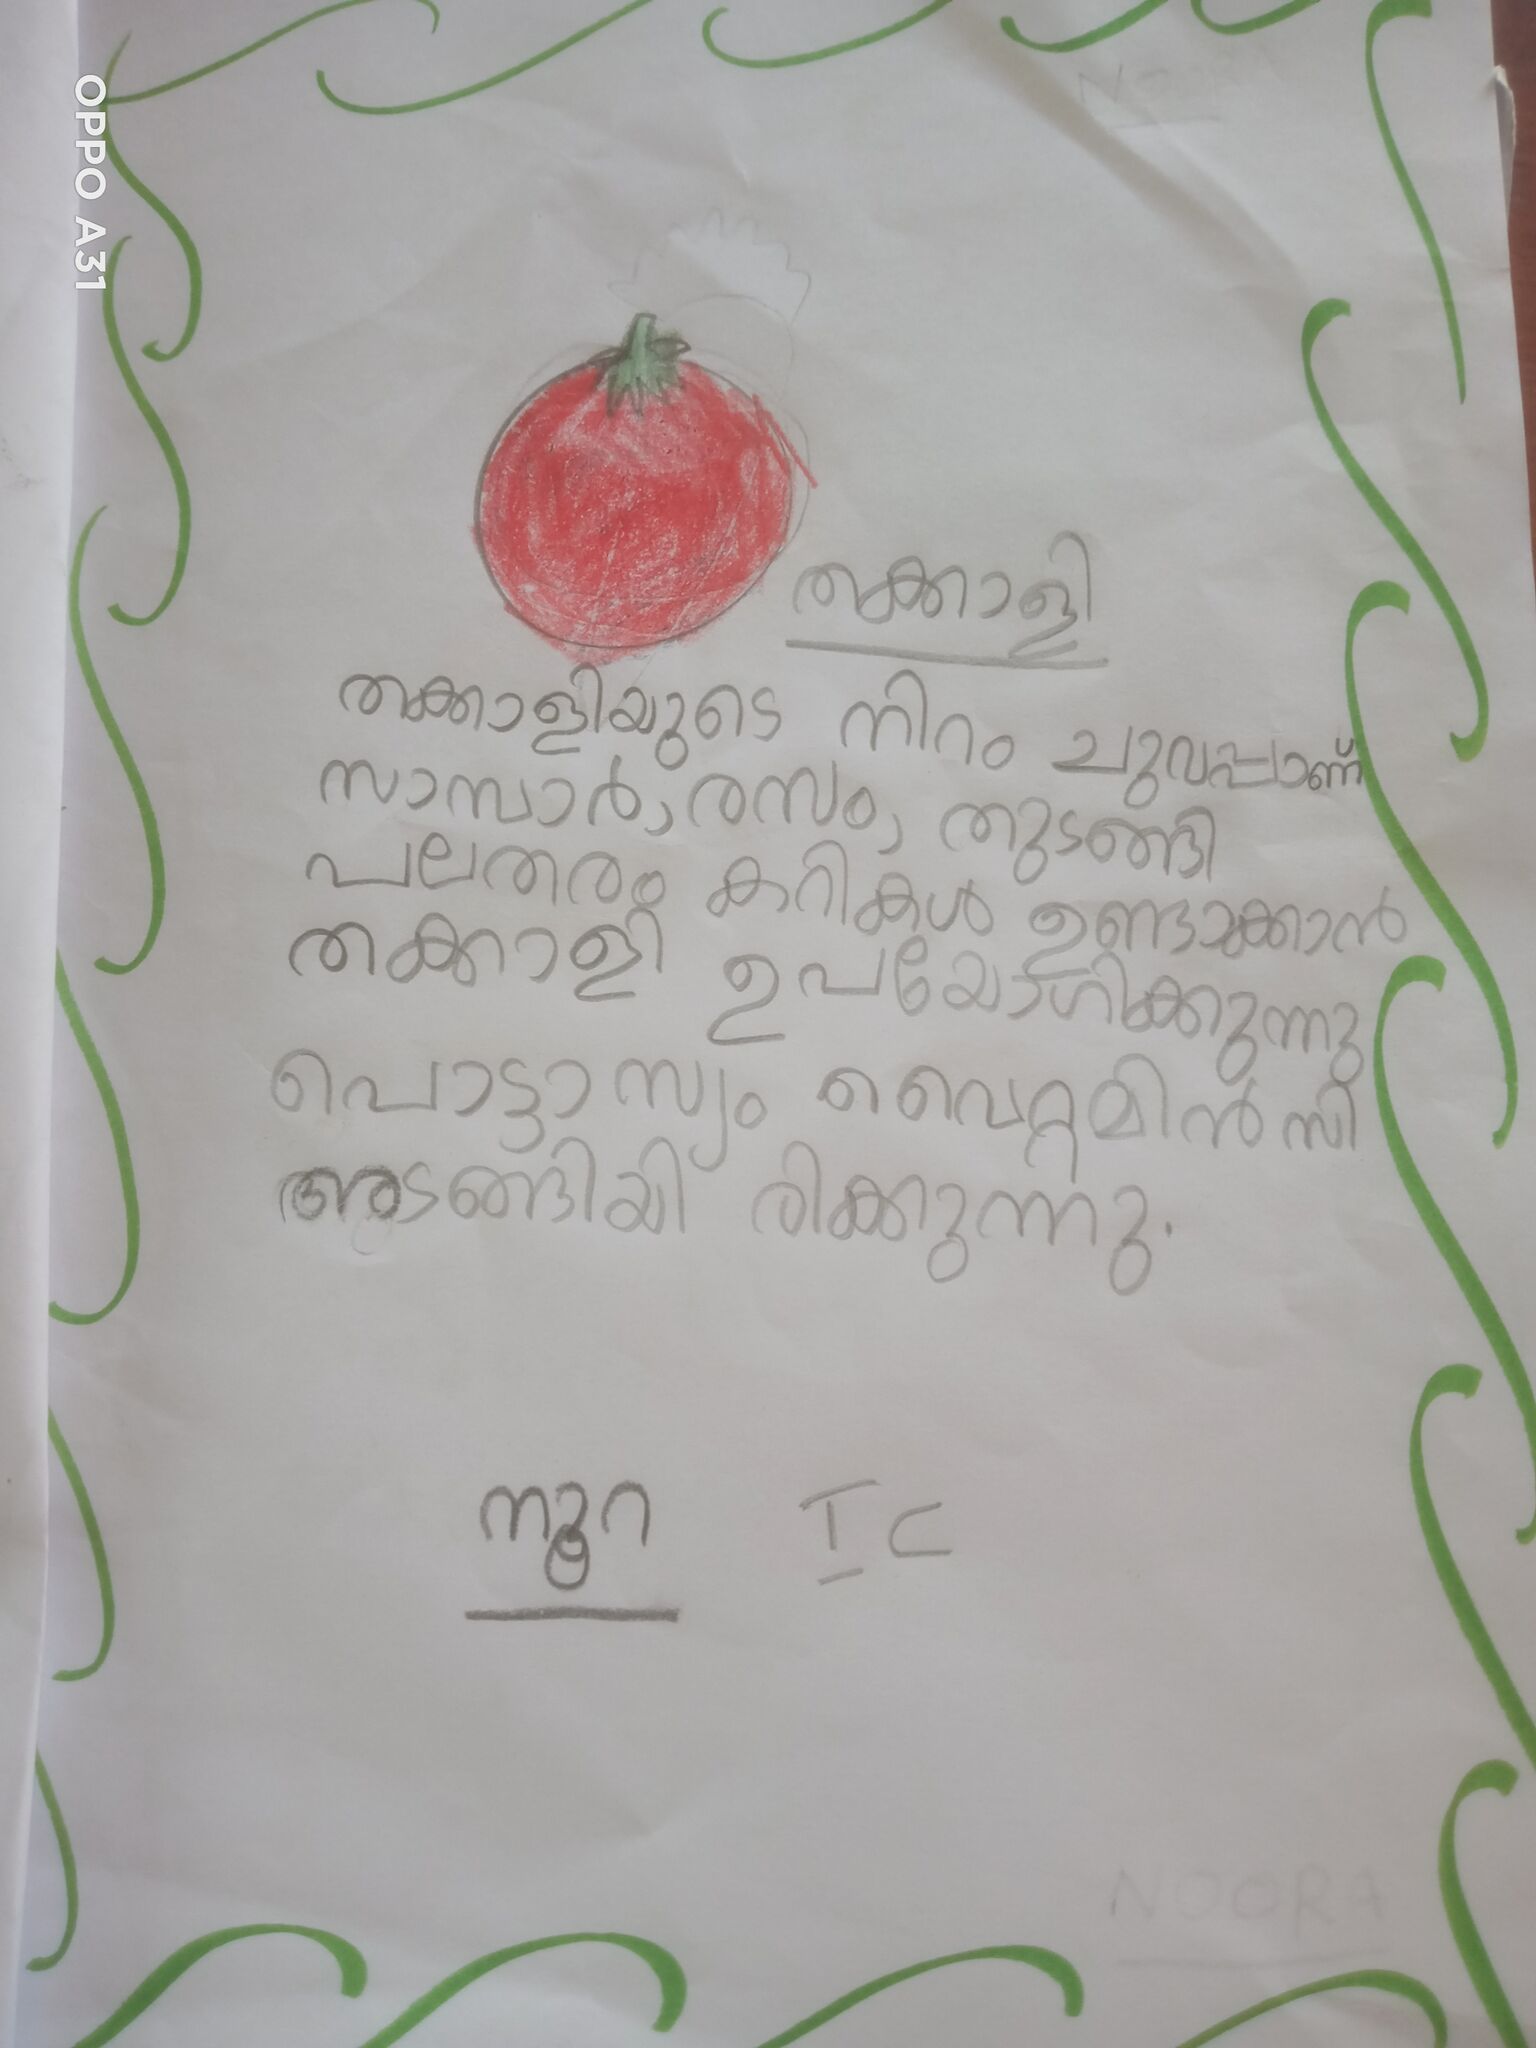 OPPO A31
തക്കാളി
തക്കാളിയുടെ നിറം ചുവപ്പാണ്
സാമ്പാർ, രസം, തുടങ്ങി
പലതരം കറികൾ ഉണ്ടാക്കാൻ
തക്കാളി ഉപയോഗിക്കുന്നു
പൊട്ടാസ്യം വൈറ്റമിൻ സി
അടങ്ങിയി രിക്കുന്നു.
നൂറ I C
NOORA